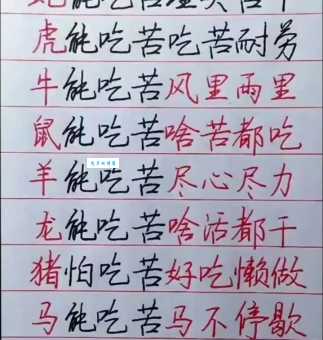 能吃苦
虎能吃苦吃苦耐劳
牛能吃苦风里雨里
鼠能吃苦啥苦都吃
羊能吃苦尽心尽力
龙能吃苦啥活都干
猪怕吃苦好吃懒做
马能吃苦马不停歇